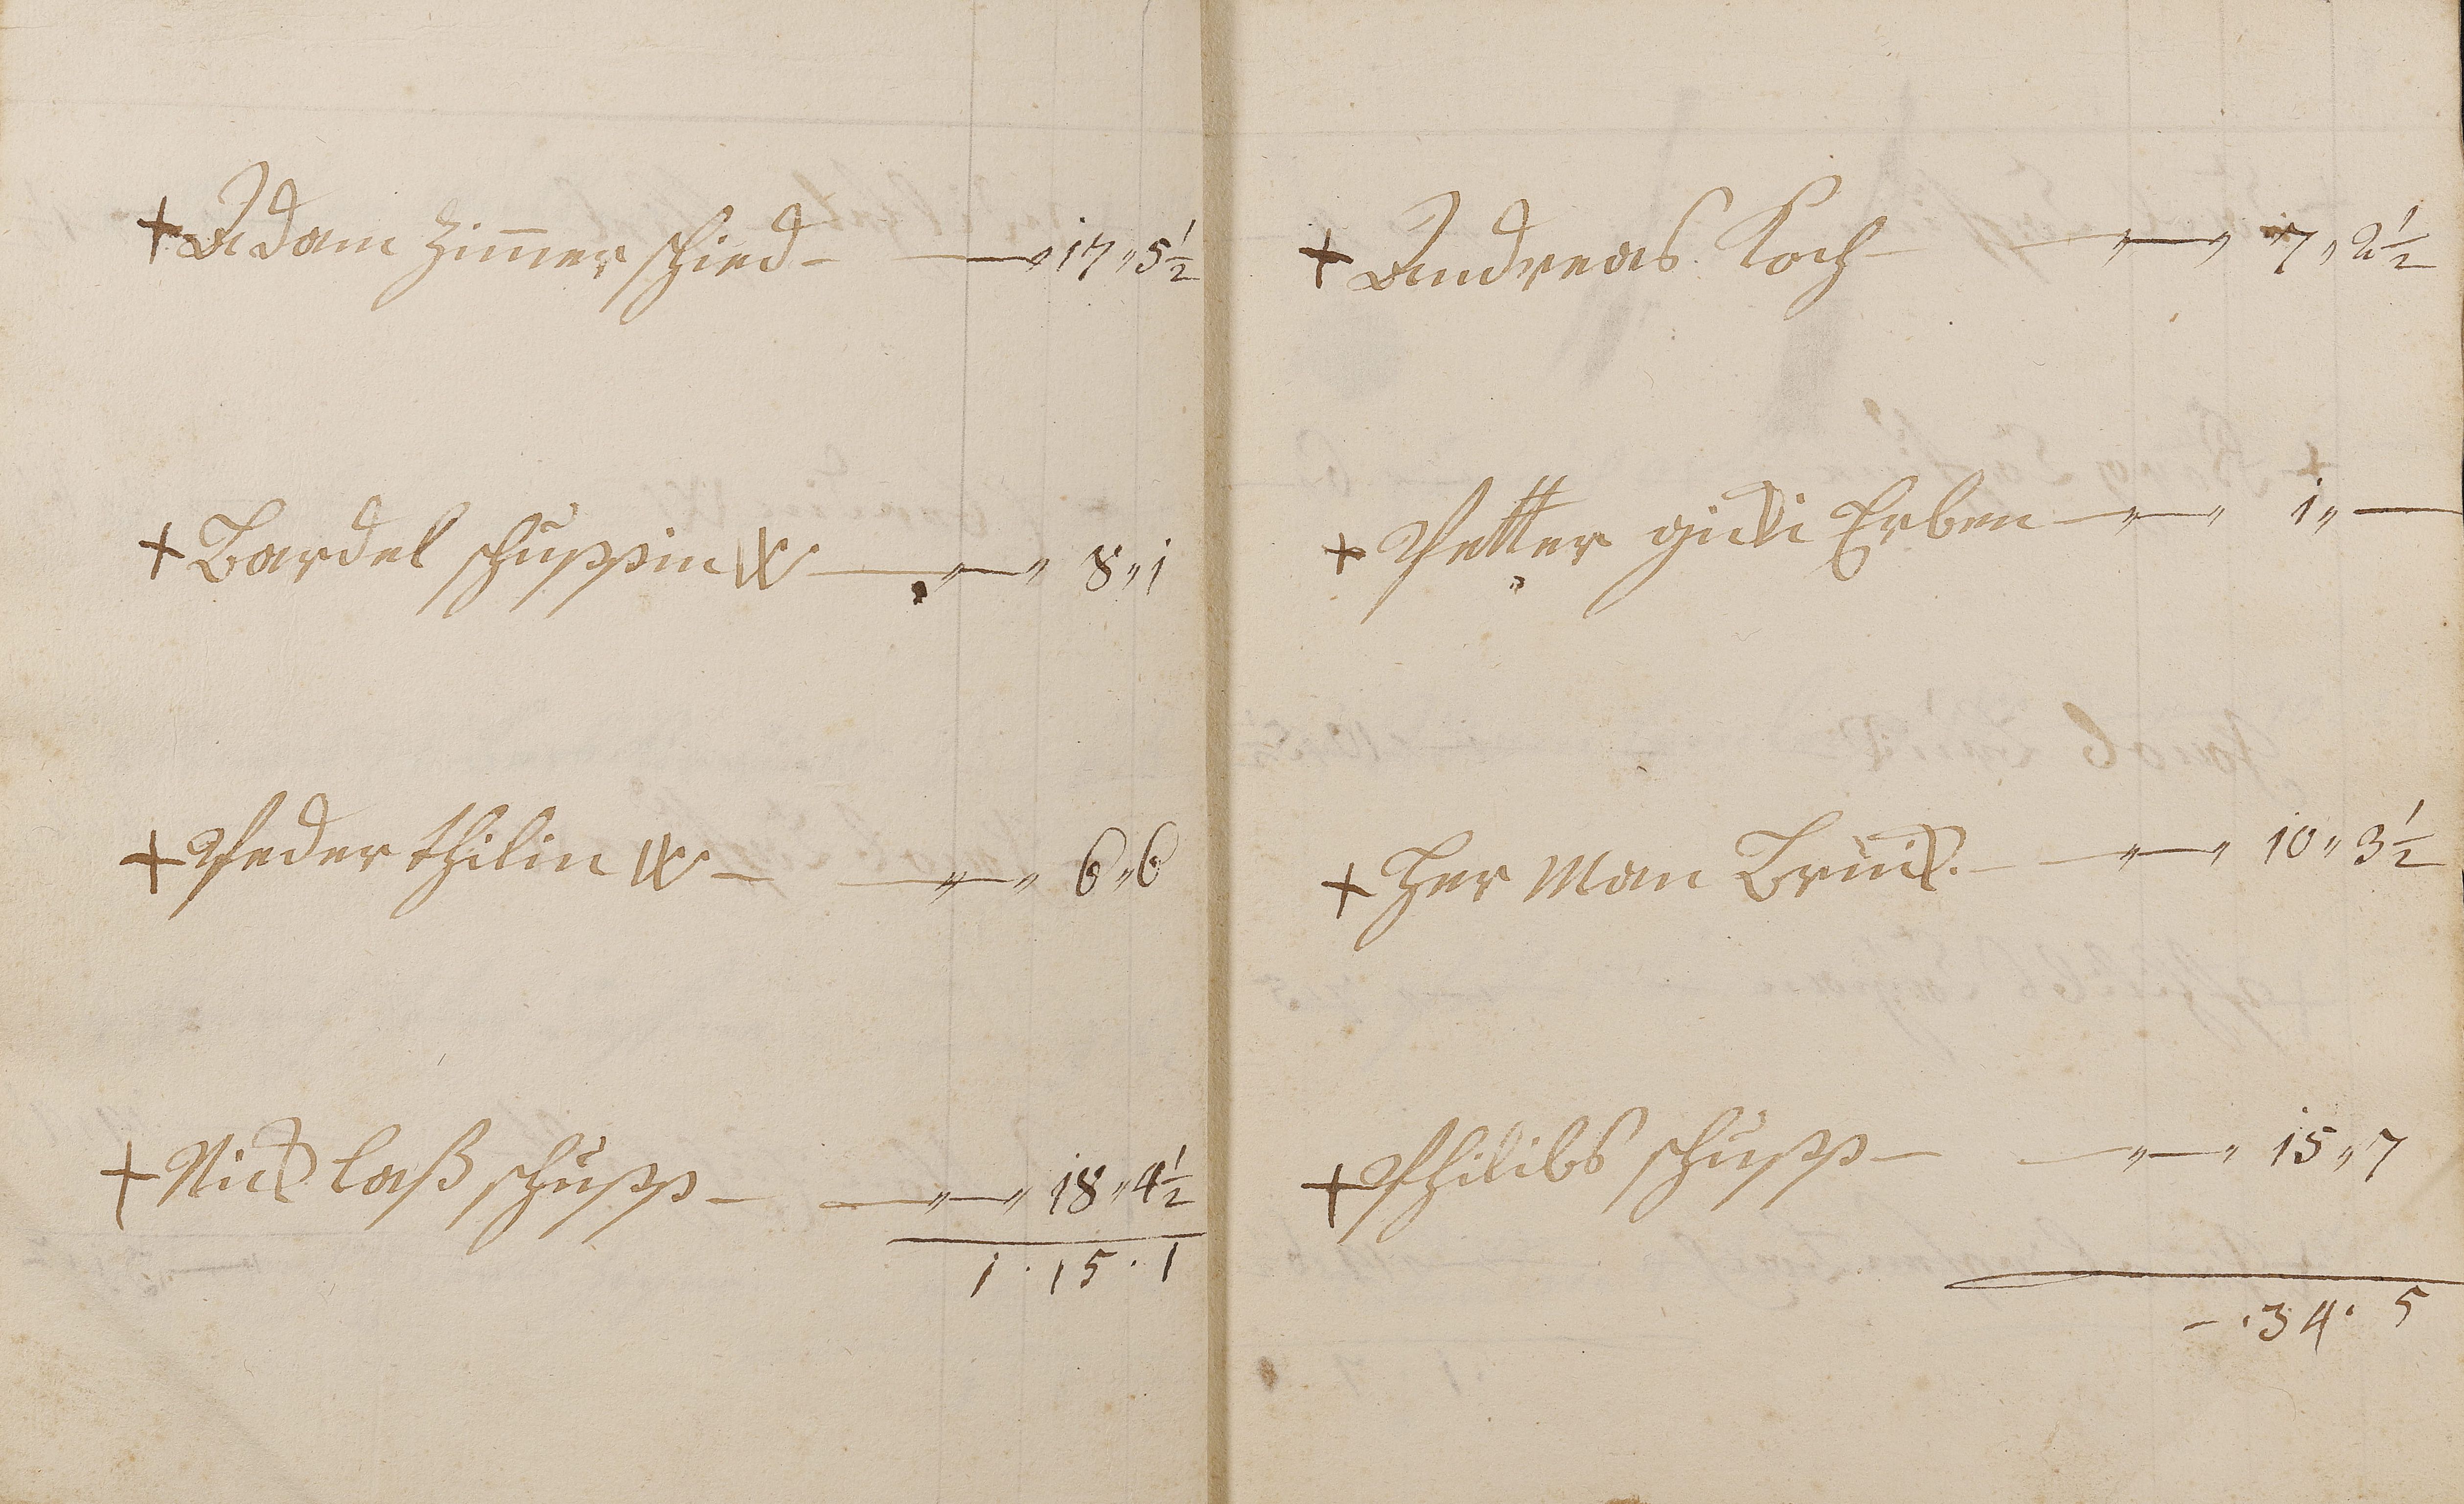 + Adam Zim̄er schied - — „ 17 „ 5½
+ Bardel schuppin W — „ — „ 8 „ 1
+ Peder thilin W - — „ — „ 6 „ 6
+ Nick laß schupp - — „ — „ 18 „ 4½
1 . 15 . 1
+ Andreas Koch - — „ — „ 7 „ 2½
+ Petter Erben — „ — „ 1 „ —
+ Her Man Brück. - — „ — „ 10 „ 3½
+ Philibs schupp - — „ — „ 15 „ 7
- . 34 . 5